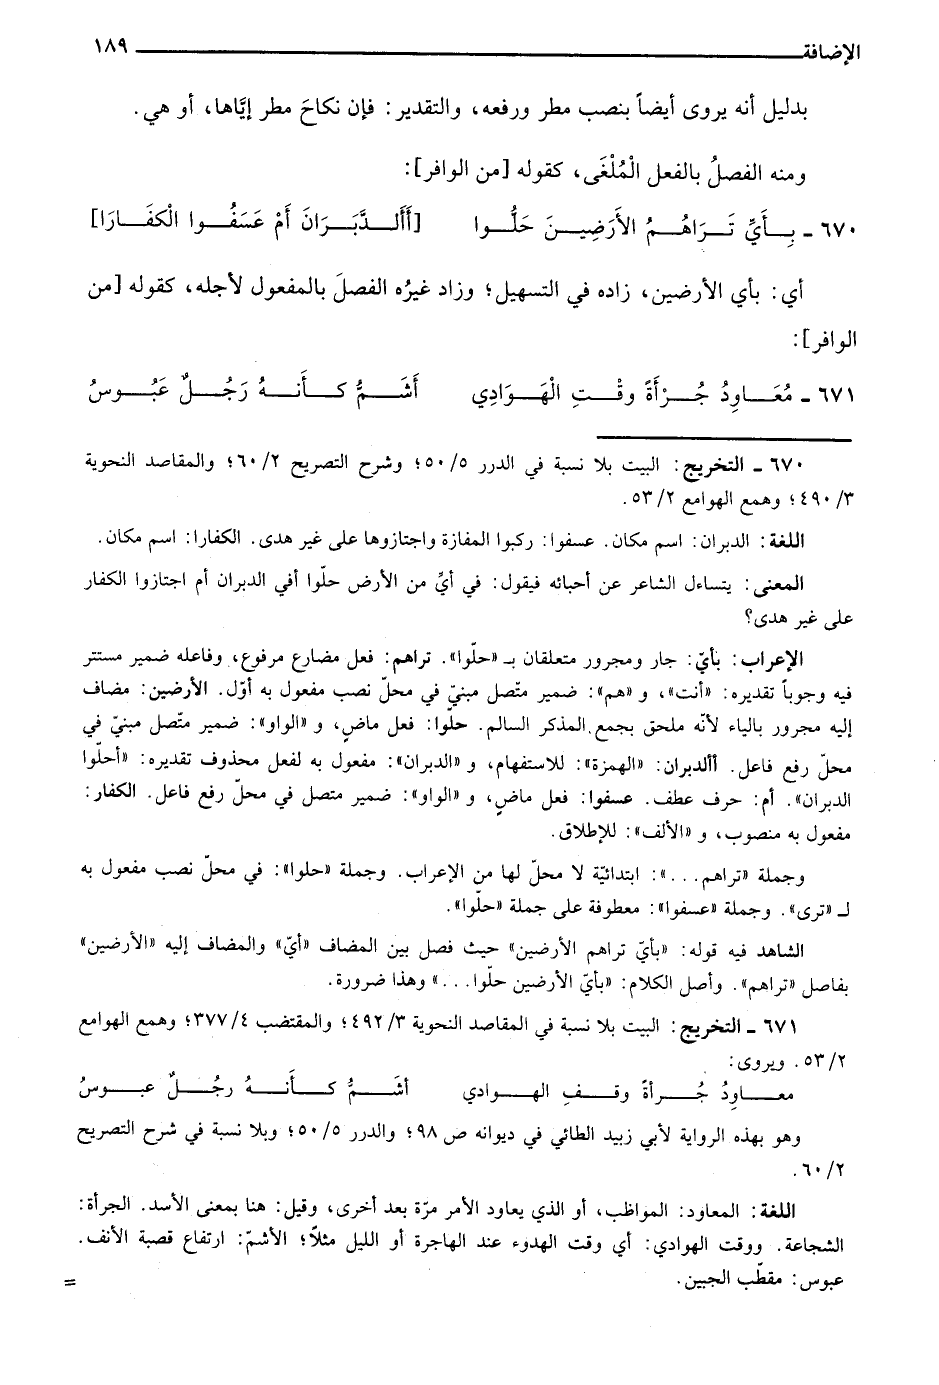 الإضافة ١٨٩
بدليل أنه يروى أيضاً بنصب مطر ورفعه، والتقدير: فإن نكاحَ مطر إيَّاها، أو هي.
ومنه الفصلُ بالفعل الْمُلْغَى، كقوله [من الوافر]:
٦٧٠ ـ بِأَيِّ تَرَاهُمُ الأَرَضِينَ حَلُّوا [أَألدَّبَرَانَ أَمْ عَسَفُوا الْكَفَارَا]
أي: بأي الأرضين، زاده في التسهيل؛ وزاد غيرُه الفصلَ بالمفعول لأجله، كقوله [من
الوافر]:
٦٧١ ـ مُعَاوِدُ جُرْأَةً وقْتِ الْهَوَادِي أَشَمُّ كَأَنهُ رَجُلٌ عَبُوسُ
٦٧٠ ـ التخريج: البيت بلا نسبة في الدرر ٥/ ٥٠؛ وشرح التصريح ٢/ ٦٠؛ والمقاصد النحوية
٣/ ٤٩٠؛ وهمع الهوامع ٢/ ٥٣.
اللغة: الدبران: اسم مكان. عسفوا: ركبوا المفازة واجتازوها على غير هدى. الكفارا: اسم مكان.
المعنى: يتساءل الشاعر عن أحبائه فيقول: في أيِّ من الأرض حلّوا أفي الدبران أم اجتازوا الكفار
على غير هدى؟
الإعراب: بأيّ: جار ومجرور متعلقان بـ «حلّوا». تراهم: فعل مضارع مرفوع، وفاعله ضمير مستتر
فيه وجوباً تقديره: «أنت»، و «هم»: ضمير متّصل مبنيّ في محلّ نصب مفعول به أوّل. الأرضين: مضاف
إليه مجرور بالياء لأنّه ملحق بجمع المذكر السالم. حلّوا: فعل ماضٍ، و «الواو»: ضمير متّصل مبنيّ في
محلّ رفع فاعل. أألدبران: «الهمزة»: للاستفهام، و «الدبران»: مفعول به لفعل محذوف تقديره: «أحلّوا
الدبران». أم: حرف عطف. عسفوا: فعل ماضٍ، و «الواو»: ضمير متصل في محلّ رفع فاعل. الكفار:
مفعول به منصوب، و «الألف»: للإطلاق.
وجملة «تراهم...»: ابتدائيّة لا محلّ لها من الإعراب. وجملة «حلوا»: في محلّ نصب مفعول به
لـ «ترى». وجملة «عسفوا»: معطوفة على جملة «حلّوا».
الشاهد فيه قوله: «بأيّ تراهم الأرضين» حيث فصل بين المضاف «أيّ» والمضاف إليه «الأرضين»
بفاصل «تراهم». وأصل الكلام: «بأيّ الأرضين حلّوا...» وهذا ضرورة.
٦٧١ ـ التخريج: البيت بلا نسبة في المقاصد النحوية ٣/ ٤٩٢؛ والمقتضب ٤/ ٣٧٧؛ وهمع الهوامع
٢/ ٥٣. ويروى:
معاوِدُ جُرأةً وقفِ الهوادي أشمُّ كأنهُ رجُلٌ عبوسُ
وهو بهذه الرواية لأبي زبيد الطائي في ديوانه ص ٩٨؛ والدرر ٥/ ٥٠؛ وبلا نسبة في شرح التصريح
٢/ ٦٠.
اللغة: المعاود: المواظب، أو الذي يعاود الأمر مرّة بعد أخرى، وقيل: هنا بمعنى الأسد. الجرأة:
الشجاعة. ووقت الهوادي: أي وقت الهدوء عند الهاجرة أو الليل مثلاً؛ الأشمّ: ارتفاع قصبة الأنف.
عبوس: مقطّب الجبين.
=